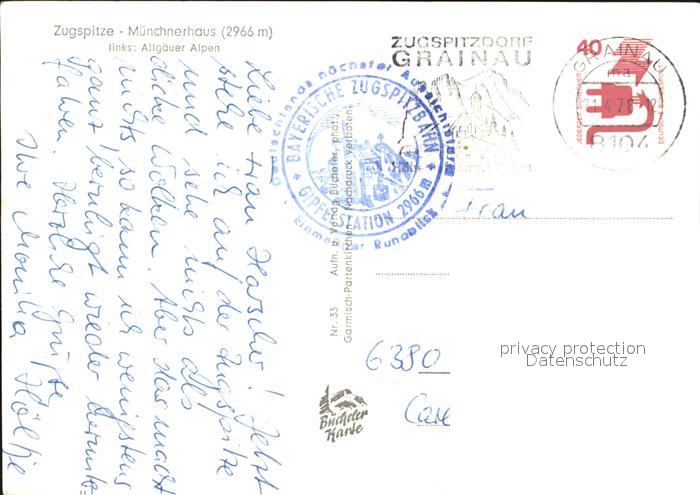 Zugspitze - Münchnerhaus (2966 m)
links: Allgäuer Alpen
Liebe Frau Horscher! Jetzt
stehe ich auf der Zugspitze
und sehe nichts als
dicke Wolken. Aber das macht
nichts so kann ich wenigstens
ganz beruhigt wieder herunter=
fahren. Herzliche Grüße
Ihre Monika
Deutschlands höchster Aussichtsberg
Einmaliger Rundblick
BAYERISCHE ZUGSPITZBAHN
GIPFELSTATION 2966 m
Nr. 33 Aufn. u. Verlag Bücheler, phot.
Garmisch-Partenkirchen - Nachdruck verboten
Bücheler
Karte
ZUGSPITZDORF
GRAINAU
GRAINAU
ma
8104
40
JEDERZEIT SICHERHEIT
DEUTSCHE BUNDESPOST
Frau
6380
privacy protection
Datenschutz